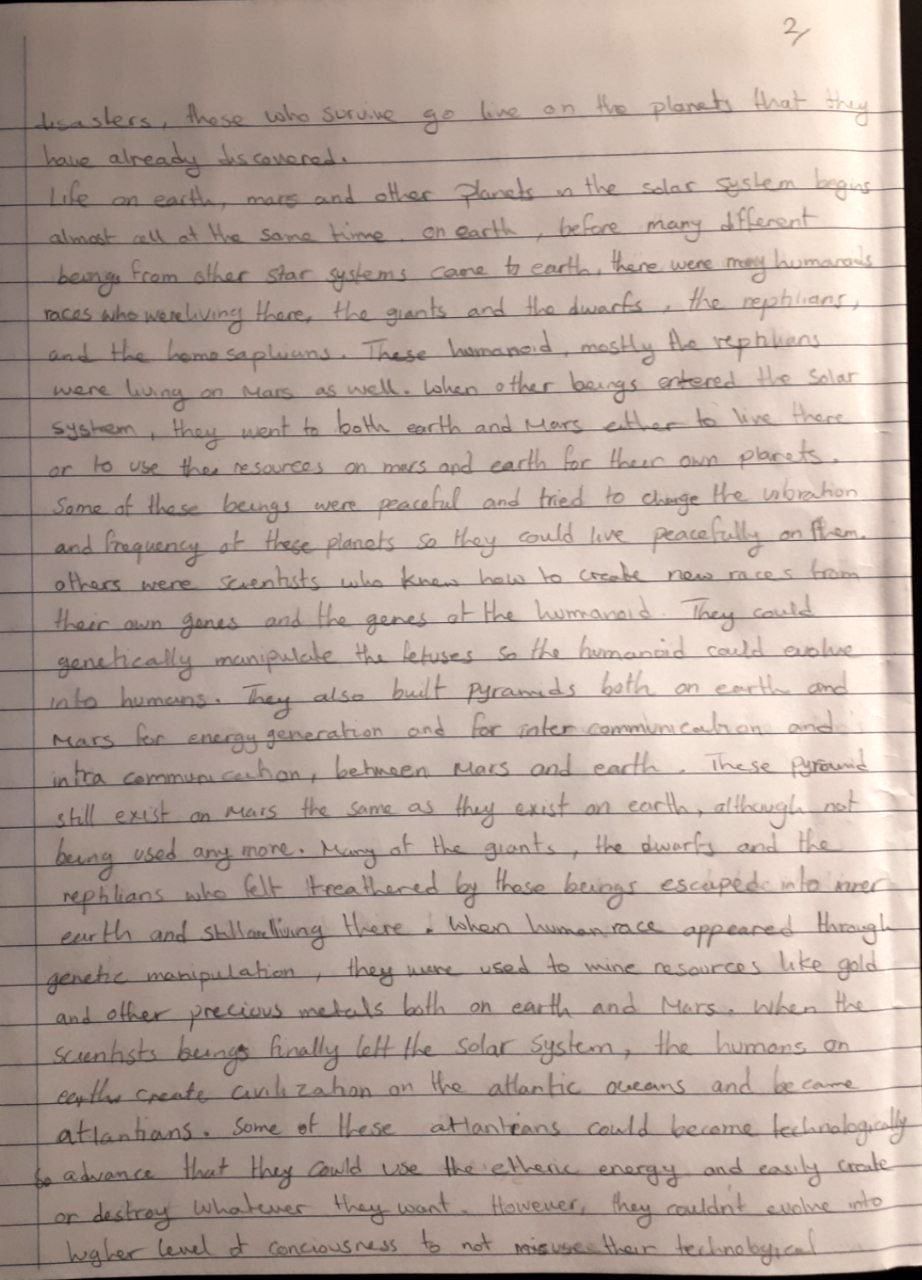 2/
disasters, those who survive go live on the planets that they
have already discovered.
Life on earth, mars and other planets in the solar system begins
almost all at the same time. on earth, before many different
beings from other star systems came to earth, there were many humanoids
races who were living there, the giants and the dwarfs, the rephlians,
and the homosaphians. These humanoid, mostly the rephliens
were living on Mars as well. When other beings entered the solar
system, they went to both earth and Mars either to live there
or to use the resources on mars and earth for their own planets.
Some of these beings were peaceful and tried to change the vibration
and frequency of these planets so they could live peacefully on them.
others were scientists who knew how to create new races from
their own genes and the genes of the humanoid. They could
genetically manipulate the fetuses so the humanoid could evolve
into humans. They also built pyramids both on earth and
Mars for energy generation and for inter communication and
intra communication, between Mars and earth. These pyramid
still exist on Mars the same as they exist on earth, although not
being used any more. Many of the giants, the dwarfs and the
rephlians who felt treathered by those beings escaped into inner
earth and still are living there. When human race appeared through
genetic manipulation, they were used to mine resources like gold
and other precious metals both on earth and Mars. When the
scientists beings finally left the solar system, the humans on
earth create civilization on the atlantic oceans and became
atlantians. Some of these atlantians could become technologically
so advance that they could use the etheric energy and easily create
or destroy whatever they want. However, they couldn't evolve into
higher level of conciousness to not misuse their technological